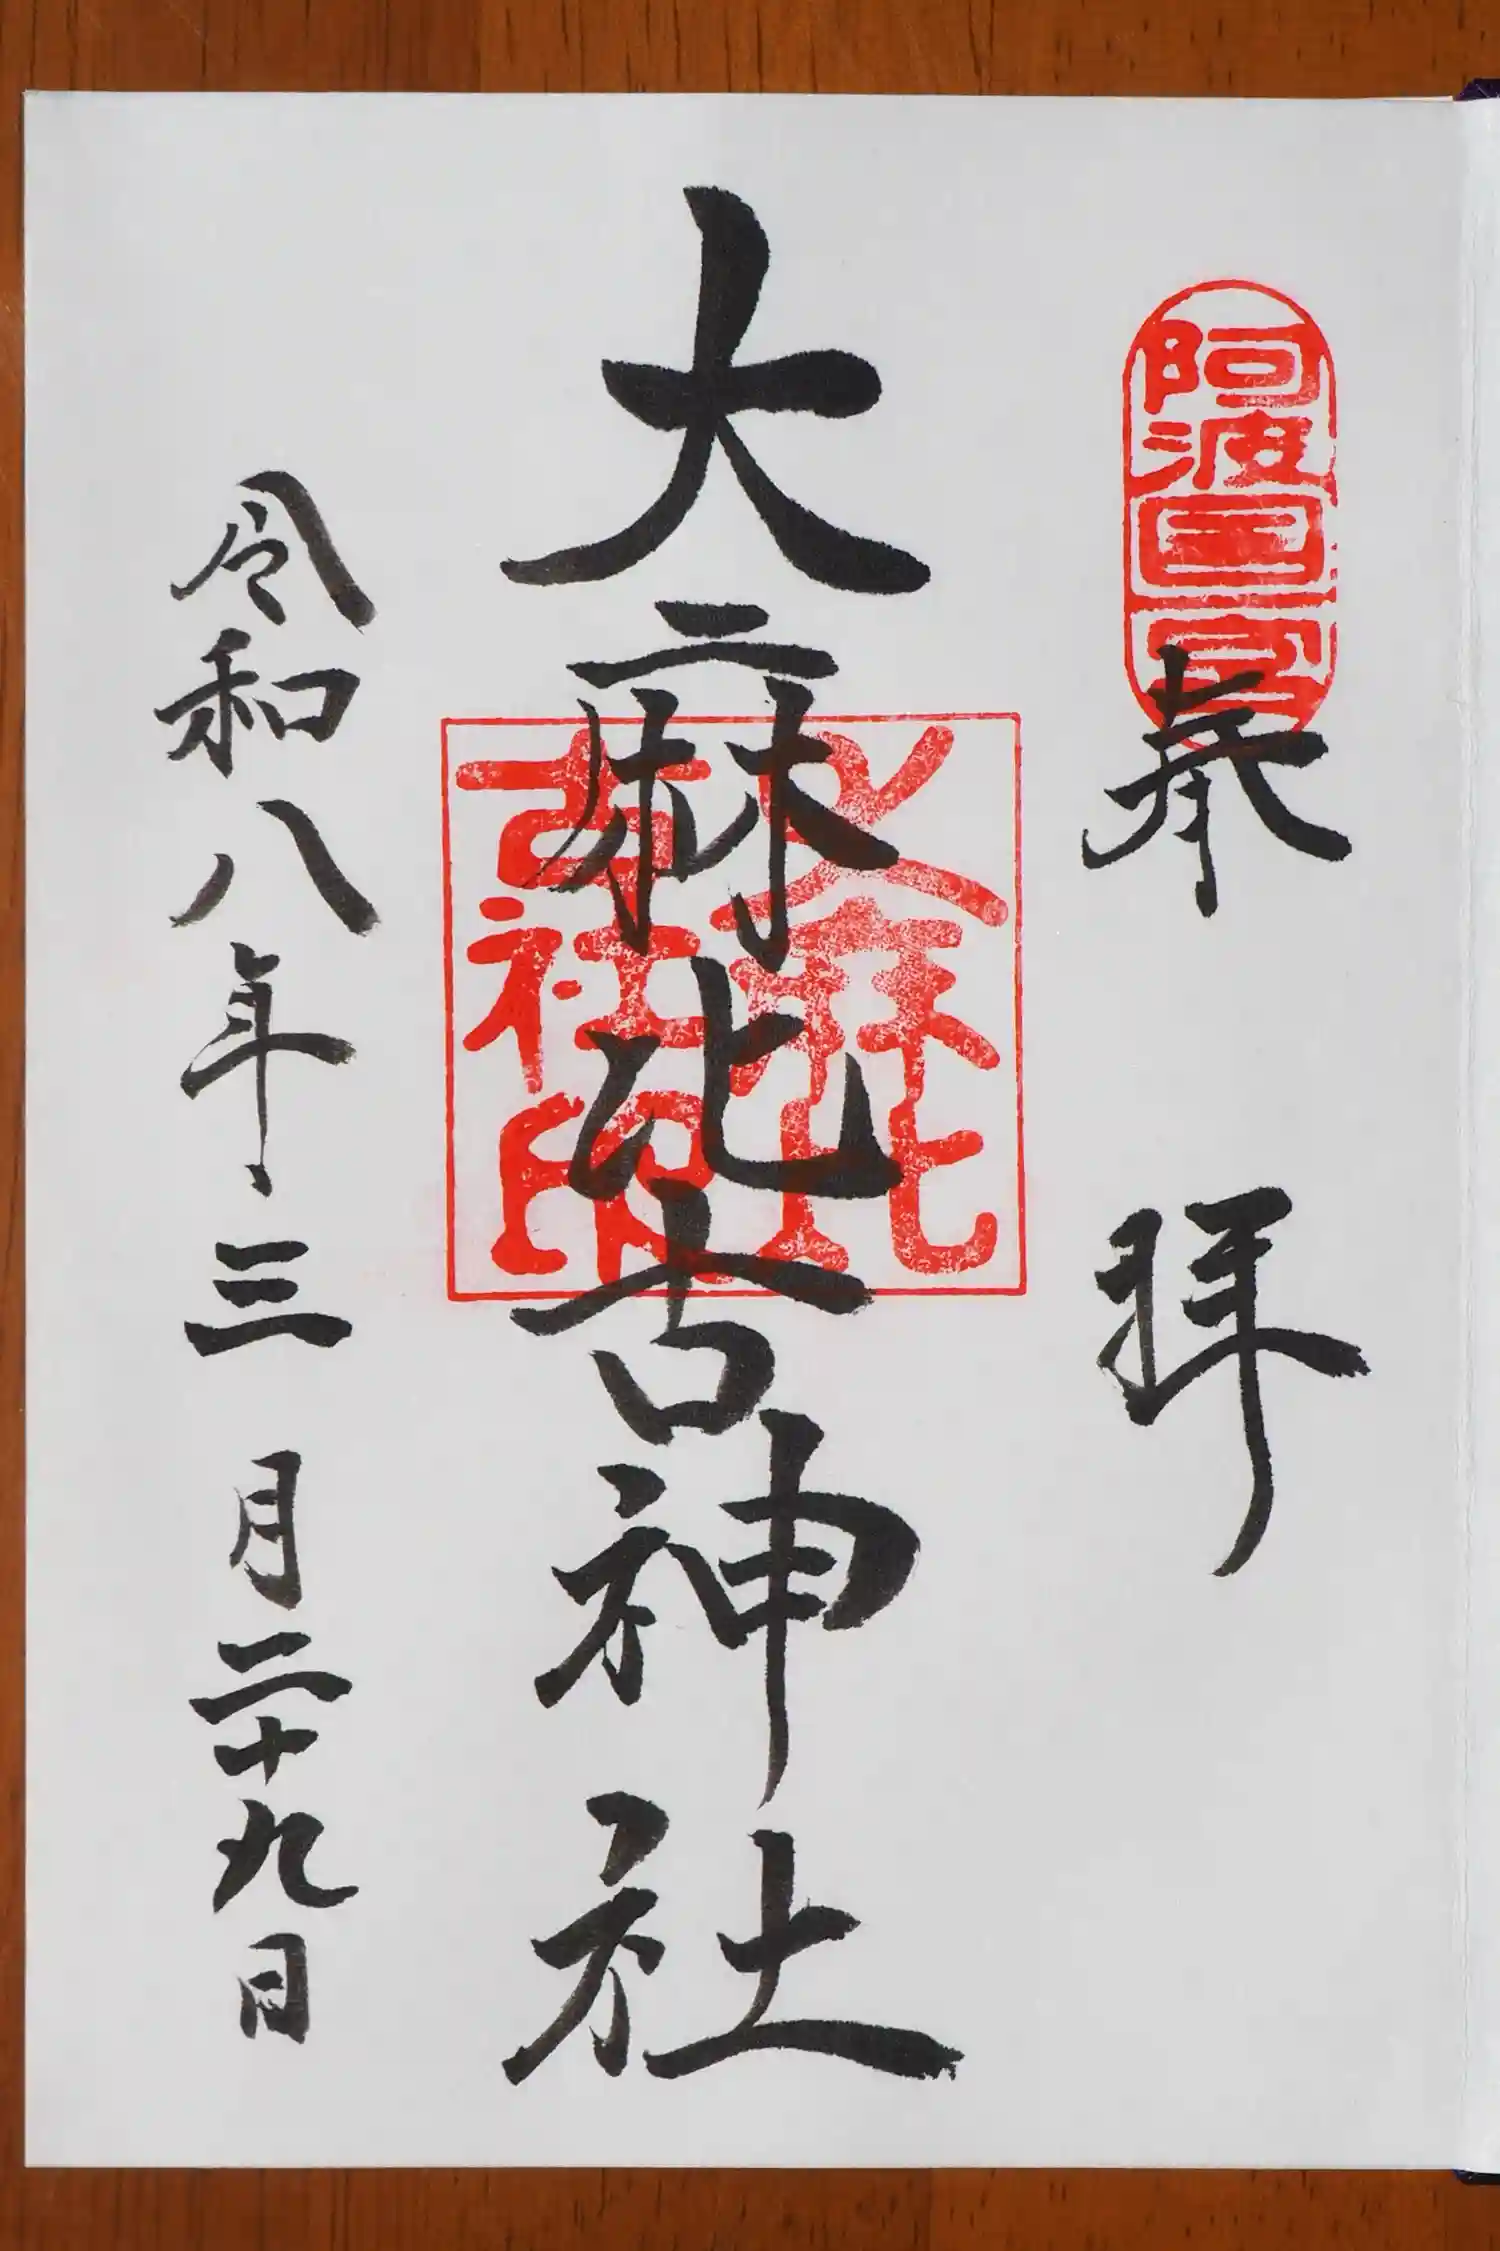 阿波国一宮
奉拝
大麻比古神社
大麻比
古社印
令和八年三月二十九日